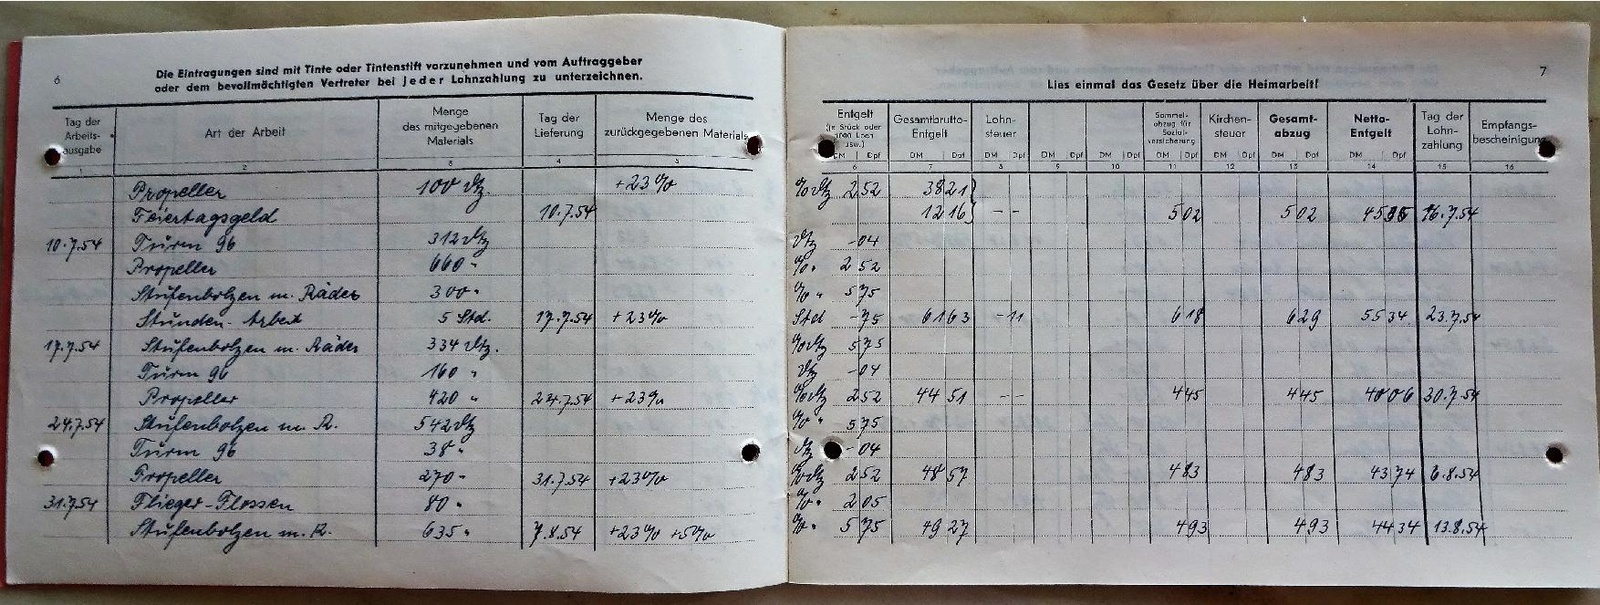 6
Die Eintragungen sind mit Tinte oder Tintenstift vorzunehmen und vom Auftraggeber
oder dem bevollmächtigten Vertreter bei jeder Lohnzahlung zu unterzeichnen.
Tag der Arbeitsausgabe | Art der Arbeit | Menge des mitgegebenen Materials | Tag der Lieferung | Menge des zurückgegebenen Materials
1 2 3 4 5
Propeller 100 Dtz. +23%
Feiertagsgeld 10.7.54
10.7.54 Turm 96 312 Dtz
Propeller 660 "
Stufenbolzen m. Räder 300 "
Stunden-Arbeit 5 Std. 17.7.54 +23%
17.7.54 Stufenbolzen m. Räder 334 Dtz.
Turm 96 160 "
Propeller 420 " 24.7.54 +23%
24.7.54 Stufenbolzen m. R. 542 Dtz
Turm 96 38 "
Propeller 270 " 31.7.54 +23%
31.7.54 Flieger-Flossen 80 "
Stufenbolzen m. R. 635 " 7.8.54 +23% +5%
7
Lies einmal das Gesetz über die Heimarbeit!
Entgelt | Gesamtbrutto-Entgelt | Lohnsteuer | Sammelabzug für Sozialversicherung | Kirchensteuer | Gesamtabzug | Netto-Entgelt | Tag der Lohnzahlung | Empfangsbescheinigung
DM Dpf DM Dpf DM Dpf DM Dpf DM Dpf DM Dpf DM Dpf DM Dpf DM Dpf
6 7 8 9 10 11 12 13 14 15 16
% Dtz 2 52 38 21 }
12 16 } -- 5 02 5 02 16.7.54
Dtz -04
% " 2 52
% " 5 75
Std -75 61 63 -11 6 18 6 29 55 34 23.7.54
% Dtz 5 75
Dtz -04
% Dtz 2 52 44 51 -- 4 45 4 45 40 06 30.7.54
% " 5 75
Dtz -04
% Dtz 2 52 48 57 4 83 4 83 43 74 6.8.54
% " 2 05
% " 5 75 49 27 4 93 4 93 44 34 13.8.54